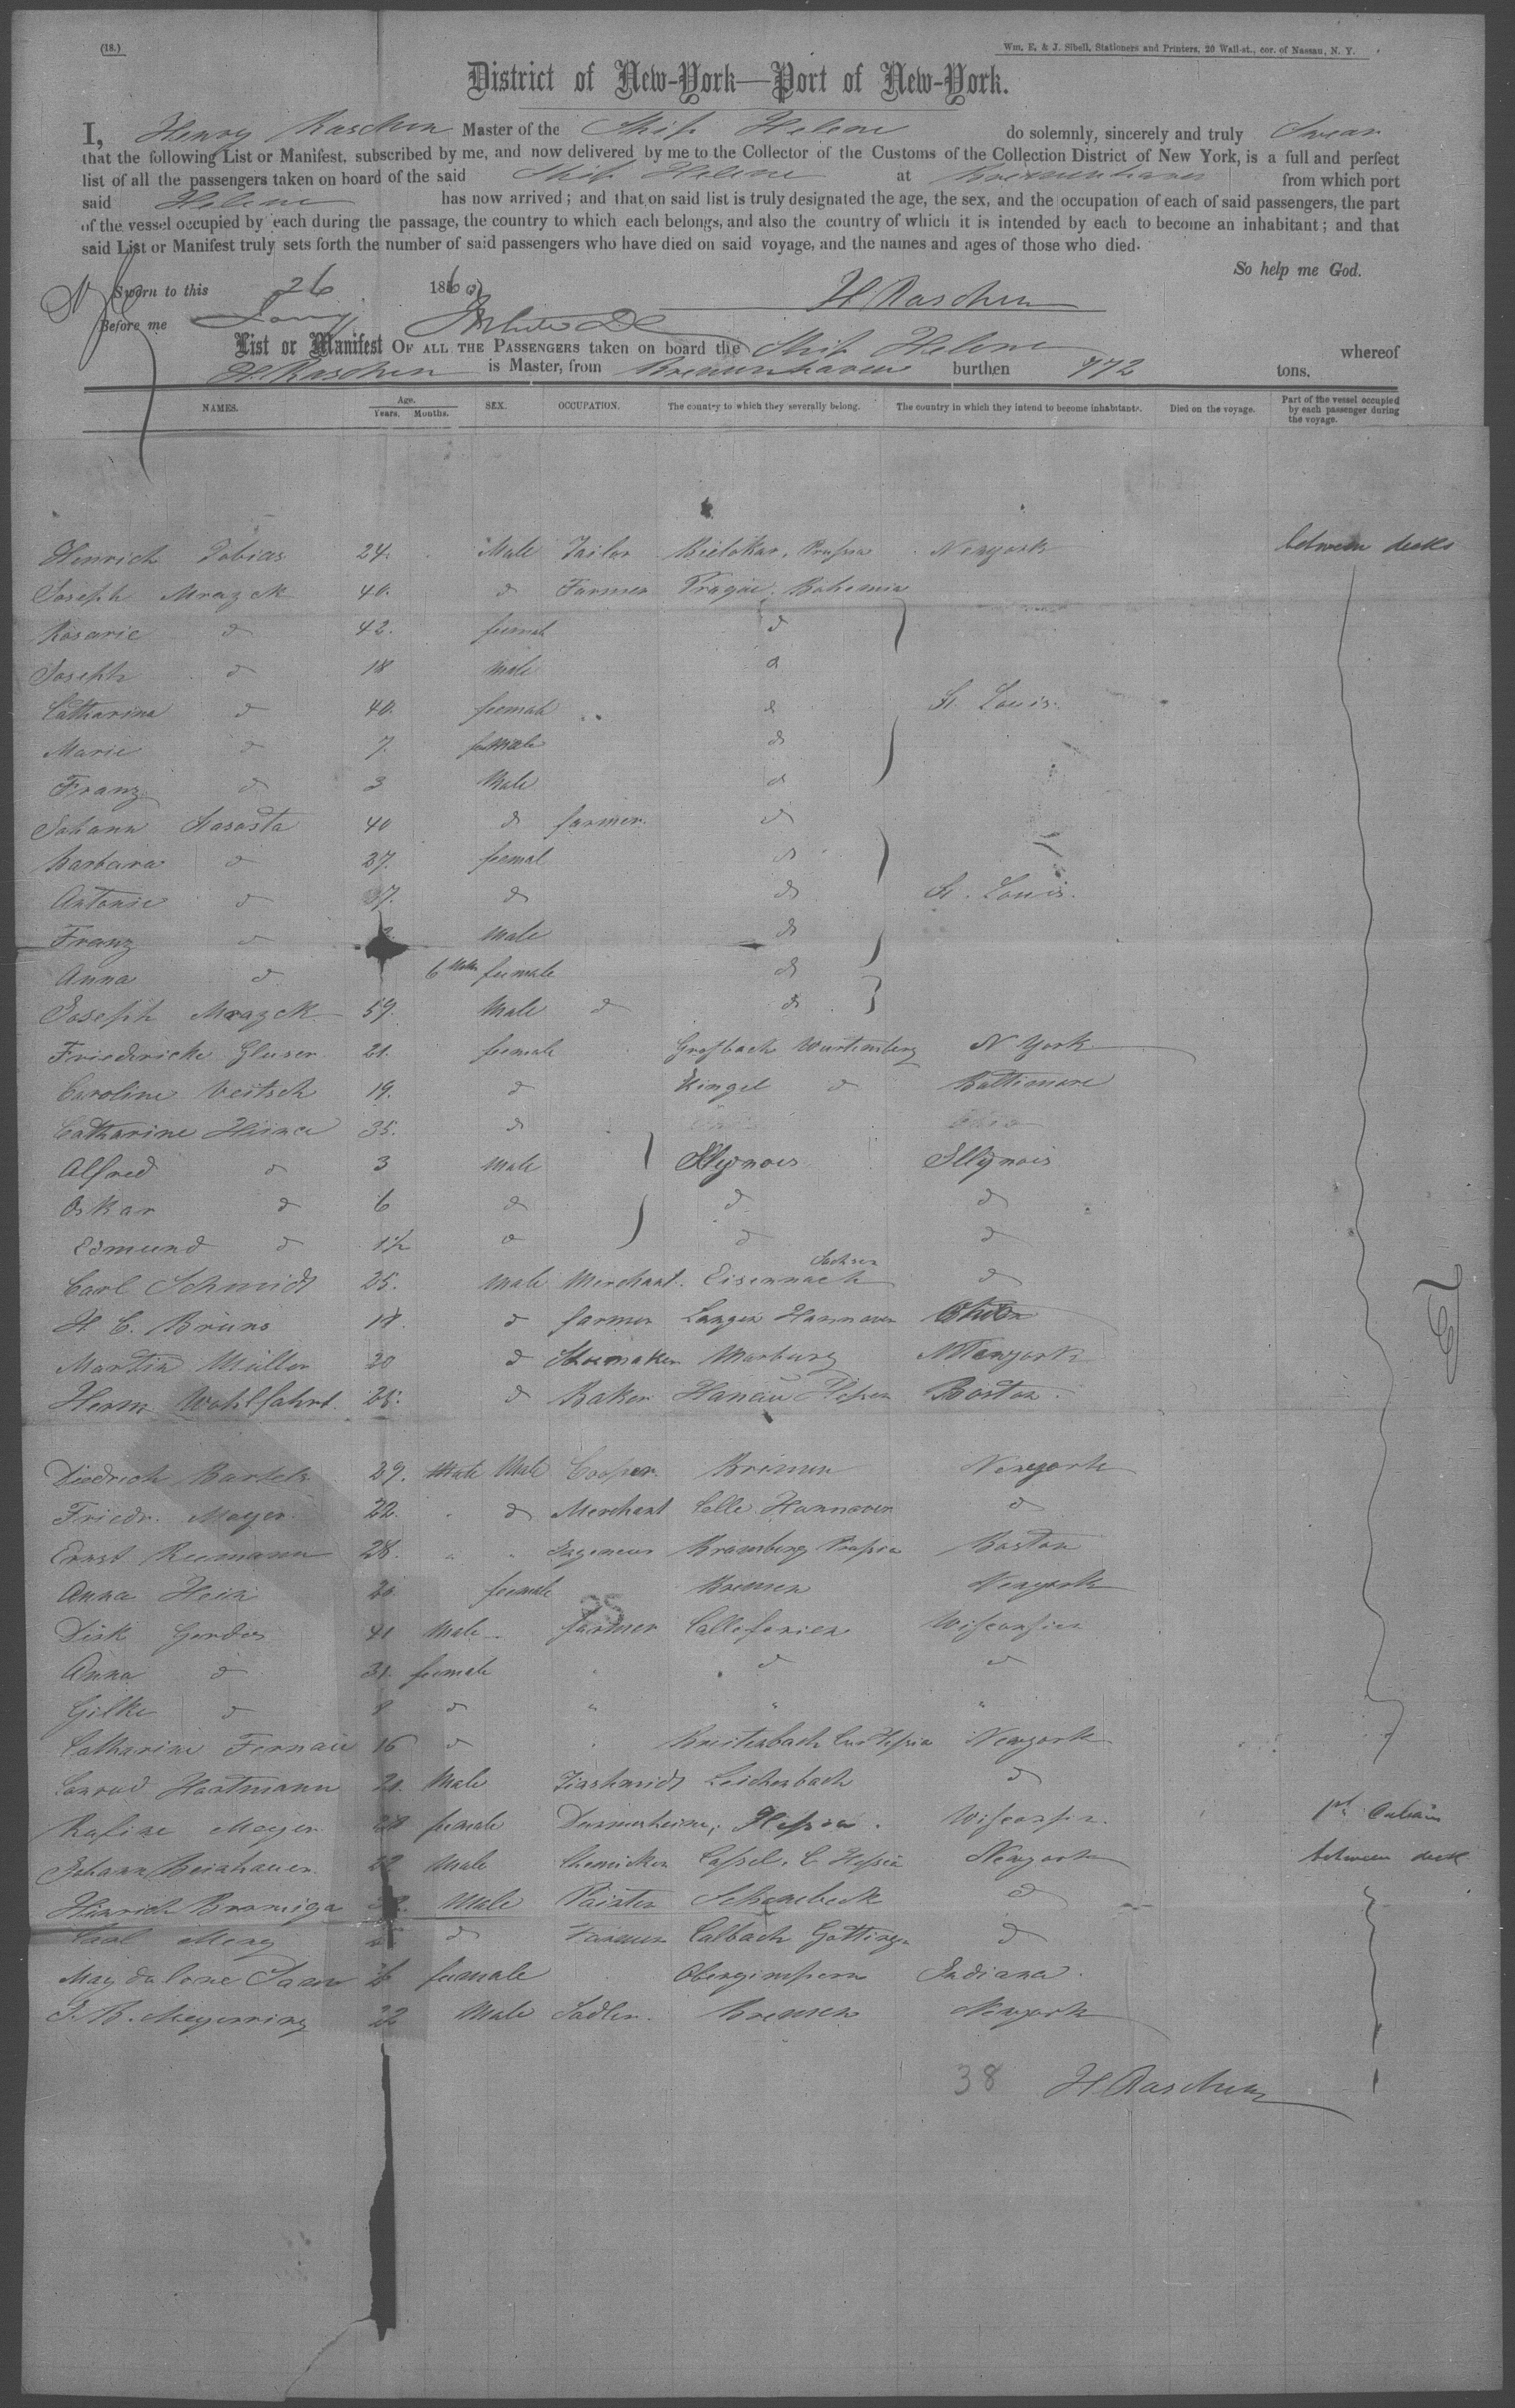 (18.)
Wm. E. & J. Sibell, Stationers and Printers, 20 Wall-st., cor. of Nassau, N. Y.
District of New-York—Port of New-York.
I, Henry Raschen Master of the Ship Helene do solemnly, sincerely and truly Swear
that the following List or Manifest, subscribed by me, and now delivered by me to the Collector of the Customs of the Collection District of New York, is a full and perfect
list of all the passengers taken on board of the said Ship Helene at Bremerhaven from which port
said Helene has now arrived; and that on said list is truly designated the age, the sex, and the occupation of each of said passengers, the part
of the vessel occupied by each during the passage, the country to which each belongs, and also the country of which it is intended by each to become an inhabitant; and that
said List or Manifest truly sets forth the number of said passengers who have died on said voyage, and the names and ages of those who died.
So help me God.
Sworn to this 26 1860 H Raschen
Before me
List or Manifest OF ALL THE PASSENGERS taken on board the Ship Helene whereof
H. Raschen is Master, from Bremerhaven burthen 772 tons.
NAMES. Age. Years. Months. SEX. OCCUPATION. The country to which they severally belong. The country in which they intend to become inhabitants. Died on the voyage. Part of the vessel occupied by each passenger during the voyage.
Henrich Tobias 24. Male Tailor Prussia Newyork between decks
Joseph Mrazek 40. d Farmer Prague, Bohemia
Rosarie d 42. femal d
Joseph d 18 Male d
Catharina d 40. femal d St Louis.
Marie d 7. female d
Franz d 3 Male d
Johann 40 d farmer d
Barbara d 37. femal d
Antonie d 7. d d St. Louis.
Franz d Male d
Anna d 6 female d
Joseph Mrazek 59. Male d d
Friedericke Gluser 21. female Wurtemberg N York
Caroline Veitsch 19. d Kingel d Baltimore
Catharine 35. d
Alfred d 3 Male Illynois Illynois
Oskar d 6 d d d
Edmund d 1½ d d d
Carl Schmidt 25. Male Merchant. Eisennach Sachsen d
H. C. Bruns 18. d farmer Langen Hannover
Martin Müller 20 d Shoemaker Marburg Newyork
Herm Wohlfahrt 25. d Baker Hanau Hessen Boston.
Diedrich Bartels 29. Male Male Cooper Bremen Newyork
Friedr. Meyer 22. d Merchant Celle Hannover d
Ernst Reemann 28. " " Ingeneur Bramberg Prussia Boston
Anna Hein 20 female Bremen Newyork
25
Dirk Gerdes 41 Male farmer Calleforien Wisconsien
Anna d 31. female " d d
Gilke d 8 d " " "
Catharine Fernau 16 d Breitenbach Newyork
Conrad Hartmann 21. Male Leichenbach d
Rosine Meyer 28 female Hessia. Wisconsin. 1st Cabin
Johann 22 Male Chemicker Cassel. C. Hessia Newyork between deck
Hinrich Bromiga Male Painter Schonebeck d
Carl d Farmer d
Magdalene female Obergimpern Indiana.
J. B. Meyerring 22 Male Sadler. Bremen Newyork
38 H Raschen